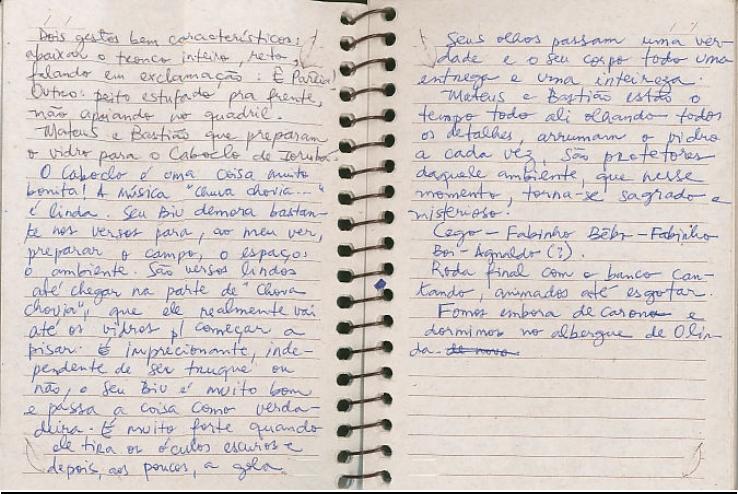 Dois gestos bem característicos:
abaixar o tronco inteiro, reto,
falando em exclamação: É Parcia!
Outro: peito estufado pra frente,
mão apoiando no quadril.
Mateus e Bastião que preparam
o vidro para o Caboclo de Iorubá.
O Caboclo é uma coisa muito
bonita! A música "chuva chovia..."
é linda. Seu Biu demora bastan-
te nos versos para, ao meu ver,
preparar o campo, o espaço;
o ambiente. São versos lindos
até chegar na parte de "Chuva
chovia", que ele realmente vai
até os vidros p/ começar a
pisar. É imprecionante, inde-
pendente de ser truque ou
não, o Seu Biu é muito bom
e passa a coisa como verda-
deira. É muito forte quando
ele tira os óculos escuros e
depois, aos poucos, a gola.
Seus olhos passam uma ver-
dade e o seu corpo todo uma
entrega e uma inteireza.
Mateus e Bastião estão o
tempo todo ali olhando todos
os detalhes, arrumam o vidro
a cada vez, são protetores
daquele ambiente, que nesse
momento, torna-se sagrado e
misterioso.
Cego - Fabinho Bêbo - Fabinho
Boi - Agnaldo (?).
Roda final com o banco can-
tando, animados até esgotar.
Fomos embora de carona e
dormimos no albergue de Olin-
da. de novo.